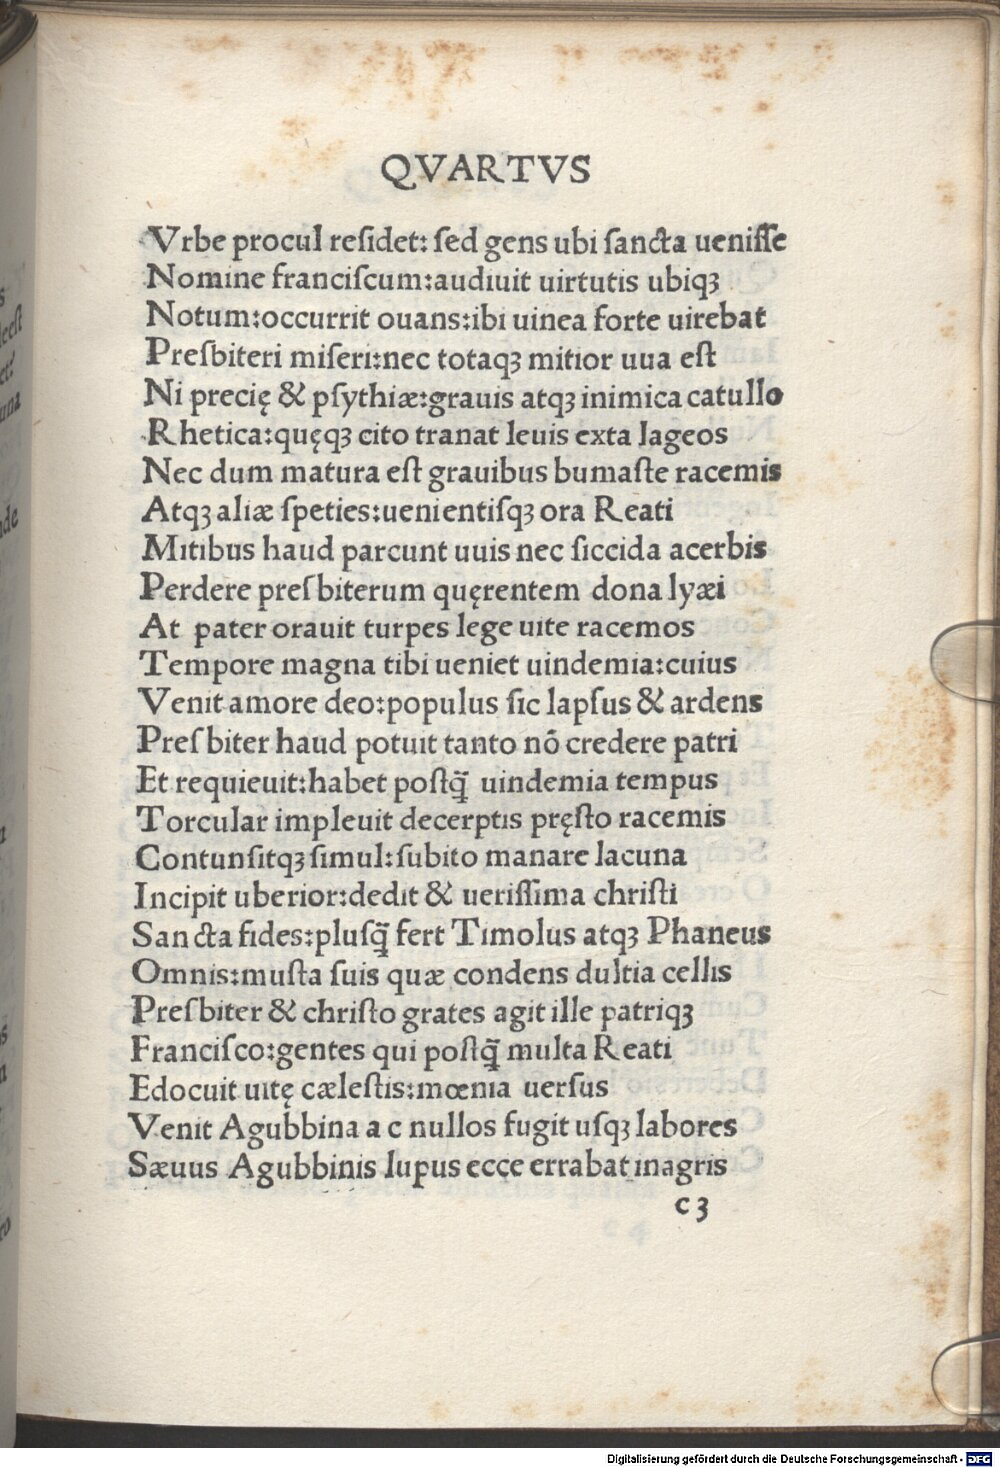 QVARTVS
Vrbe procul reſidet: ſed gens ubi ſancta ueniſſe
Nomine franciſcum:audiuit uirtutis ubiqꝫ
Notum:occurrit ouans:ibi uinea forte uirebat
Preſbiteri miſeri:nec totaqꝫ mitior uua eſt
Ni precię & pſythiæ:grauis atqꝫ inimica catullo
Rhetica:quęqꝫ cito tranat leuis exta lageos
Nec dum matura eſt grauibus bumaſte racemis
Atqꝫ aliæ ſpeties:uenientiſqꝫ ora Reati
Mitibus haud parcunt uuis nec ſiccida acerbis
Perdere preſbiterum quęrentem dona lyæi
At pater orauit turpes lege uite racemos
Tempore magna tibi ueniet uindemia:cuius
Venit amore deo:populus ſic lapſus & ardens
Preſbiter haud potuit tanto nō credere patri
Et requieuit:habet poſtq̃ uindemia tempus
Torcular impleuit decerptis pręſto racemis
Contunſitqꝫ ſimul:ſubito manare lacuna
Incipit uberior:dedit & ueriſſima chriſti
Sancta fides:pluſq̃ fert Timolus atqꝫ Phaneus
Omnis:muſta ſuis quæ condens dultia cellis
Preſbiter & chriſto grates agit ille patriqꝫ
Franciſco:gentes qui poſtq̃ multa Reati
Edocuit uitę cæleſtis:mœnia uerſus
Venit Agubbina a c nullos fugit uſqꝫ labores
Sæuus Agubbinis lupus ecçe errabat in agris
c 3
Digitalisierung gefördert durch die Deutsche Forschungsgemeinschaft - DFG